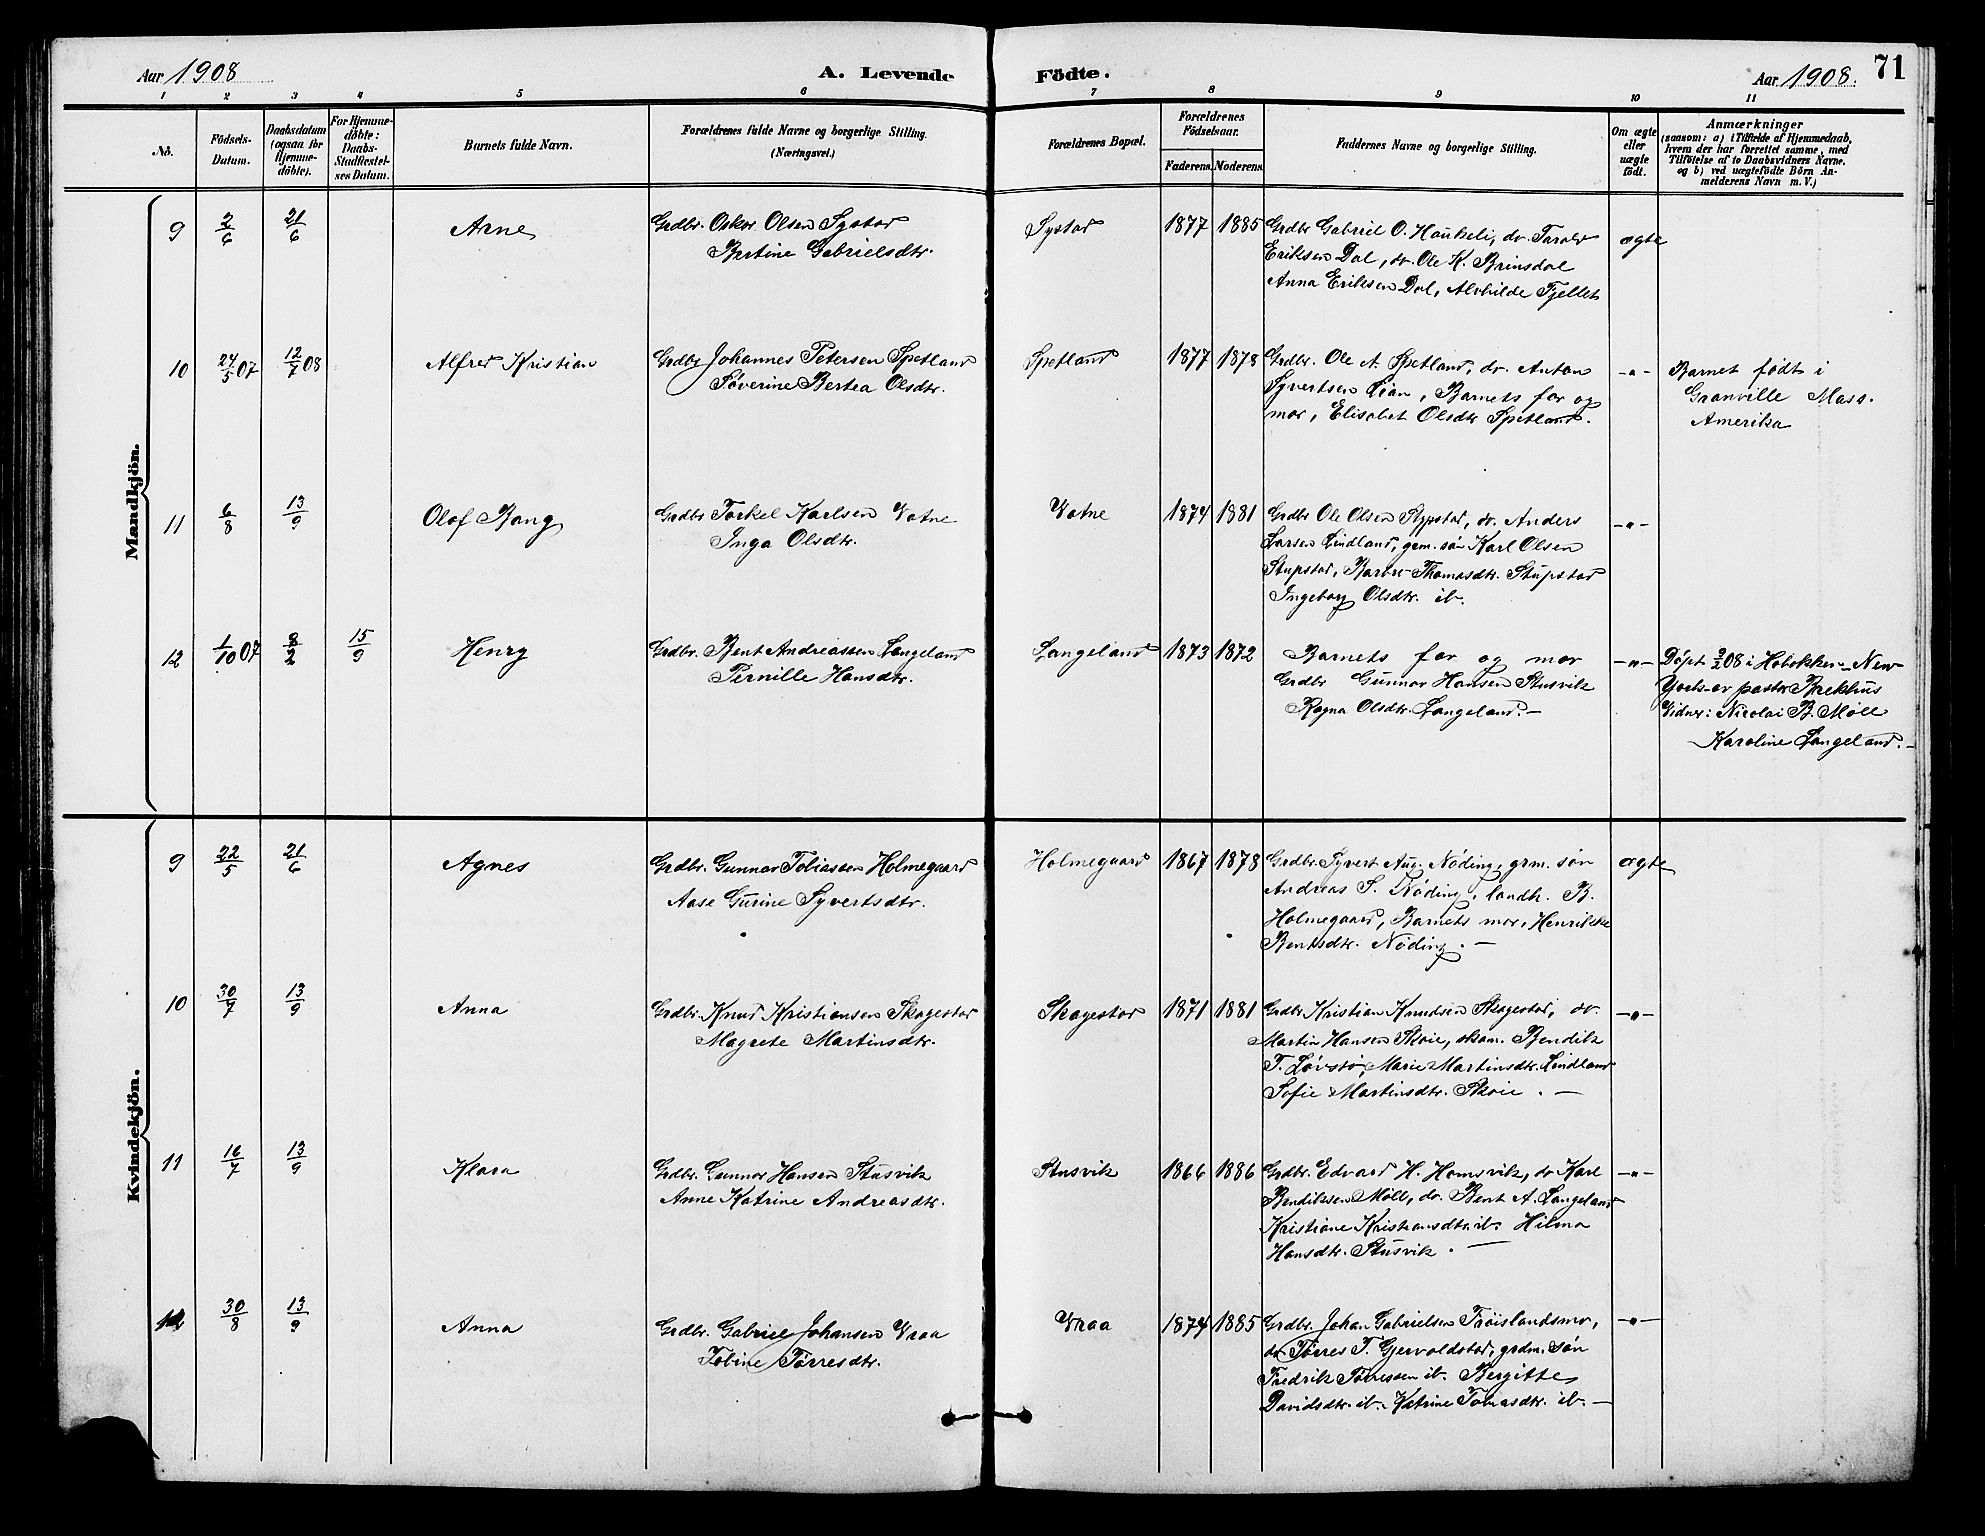 Aar 1908
A. Levende Födte.
Aar 1908.
71
1 2 3 4 5 6 7 8 9 10 11
No.
Födsels-
Datum.
Daabsdatum
(ogsaa for
Hjemme-
döbte).
For Hjemme-
döbte:
Daabs-
Stadfæstel-
ses Datum.
Barnets fulde Navn.
Forældrenes fulde Navne og borgerlige Stilling.
(Næringsvei.)
Forældrenes Bopæl.
Forældrenes
Födselsaar.
Faderens. Moderens.
Faddernes Navne og borgerlige Stilling.
Om ægte
eller
uægte
födt.
Anmærkninger
(saasom: a) i Tilfælde af Hjemmedaab,
hvem der har forrettet samme, med
Tilföielse af to Daabsvidners Navne.
og b) ved uægtefödte Börn An-
melderens Navn m. V.)
Mandkjön.
9 2/6 21/6 Arne
Grdbr. Oskar Olsen Systad
Bertine Gabrielsdtr.
Systad 1877 1885
Grdbr Gabriel O. Haukeli, do. Tarald
Eriksen Dal, do. Ole K. Brinsdal
Anna Eriksen Dal, Alvhilde Fjellet
ægte
10 24/5 07 12/7 08 Alfred Kristian
Grdbr Johannes Petersen Spetland
Søverine Bertea Olsdtr.
Spetland 1877 1878
Grdbr. Ole A. Spetland, do. Anton
Syvertsen Lian, Barnets far og
mor, Elisabet Olsdtr Spetland.
-"-
Barnet født i
Granville Mass.
Amerika
11 6/8 13/9 Olaf Bang
Grdbr Torkel Karlsen Votne
Inga Olsdtr.
Votne 1874 1881
Grdbr Ole Olsen Stypstad, do. Anders
Larsen Lindland, grm. søn Karl Olsen
Stupstad, Barbr. Thomasdtr. Stupstad
Ingeborg Olsdtr. ib.
-"-
12 1/10 07 9/2 15/9 Henry
Grdbr. Bent Andreassen Langeland
Pernille Hansdtr.
Langeland 1873 1872
Barnets far og mor
Grdbr Gunnar Hansen Stusvik
Ragna Olsdtr. Langeland. -
-"-
Døpt 9/2 08 i Hobokken - New-
York av pastor Brekhus
Vidner: Nicolai B. Møll
Karoline Langeland. -
Kvindekjön.
9 22/5 21/6 Agnes
Grdbr. Gunnar Tobiassen Holmegaard
Aase Gurine Syvertsdtr.
Holmegaard 1867 1878
Grdbr. Syvert Aug. Nøding, grm. søn
Andreas S. Nøding, landh. B.
Holmegaard, Barnets mor, Henrikke
Bentsdtr. Nøding. -
ægte
10 30/7 13/9 Anna
Grdbr. Knud Kristiansen Skagestad
Magrete Martinsdtr.
Skagestad 1871 1881
Grdbr Kristian Knudsen Skagestad, do.
Martin Hansen Skoie, skom. Bendik
T. Løvstø, Marie Martinsdtr. Lindland
Sofie Martinsdtr. Skoie. -
-"-
11 16/7 13/9 Klara
Grdbr. Gunnar Hansen Stusvik
Anne Katrine Andreasdtr.
Stusvik 1866 1886
Grdbr. Edvard H. Homsvik, do Karl
Bendiksen Møll, do. Bent A. Langeland
Kristiane Kristiansdtr. ib. Hilma
Hansdtr. Stusvik. -
-"-
12 30/8 13/9 Anna
Grdbr. Gabriel Johansen Vraa
Tobine Tørresdtr.
Vraa 1874 1885
Grdbr. Johan Gabrielsen Trøislandsmo,
do Tørres T. Gjervoldstad, grdm. søn
Fredrik Tørressen ib. Bergitte
Davidsdtr. ib. Katrine Tobiasdtr. ib. -
-"-